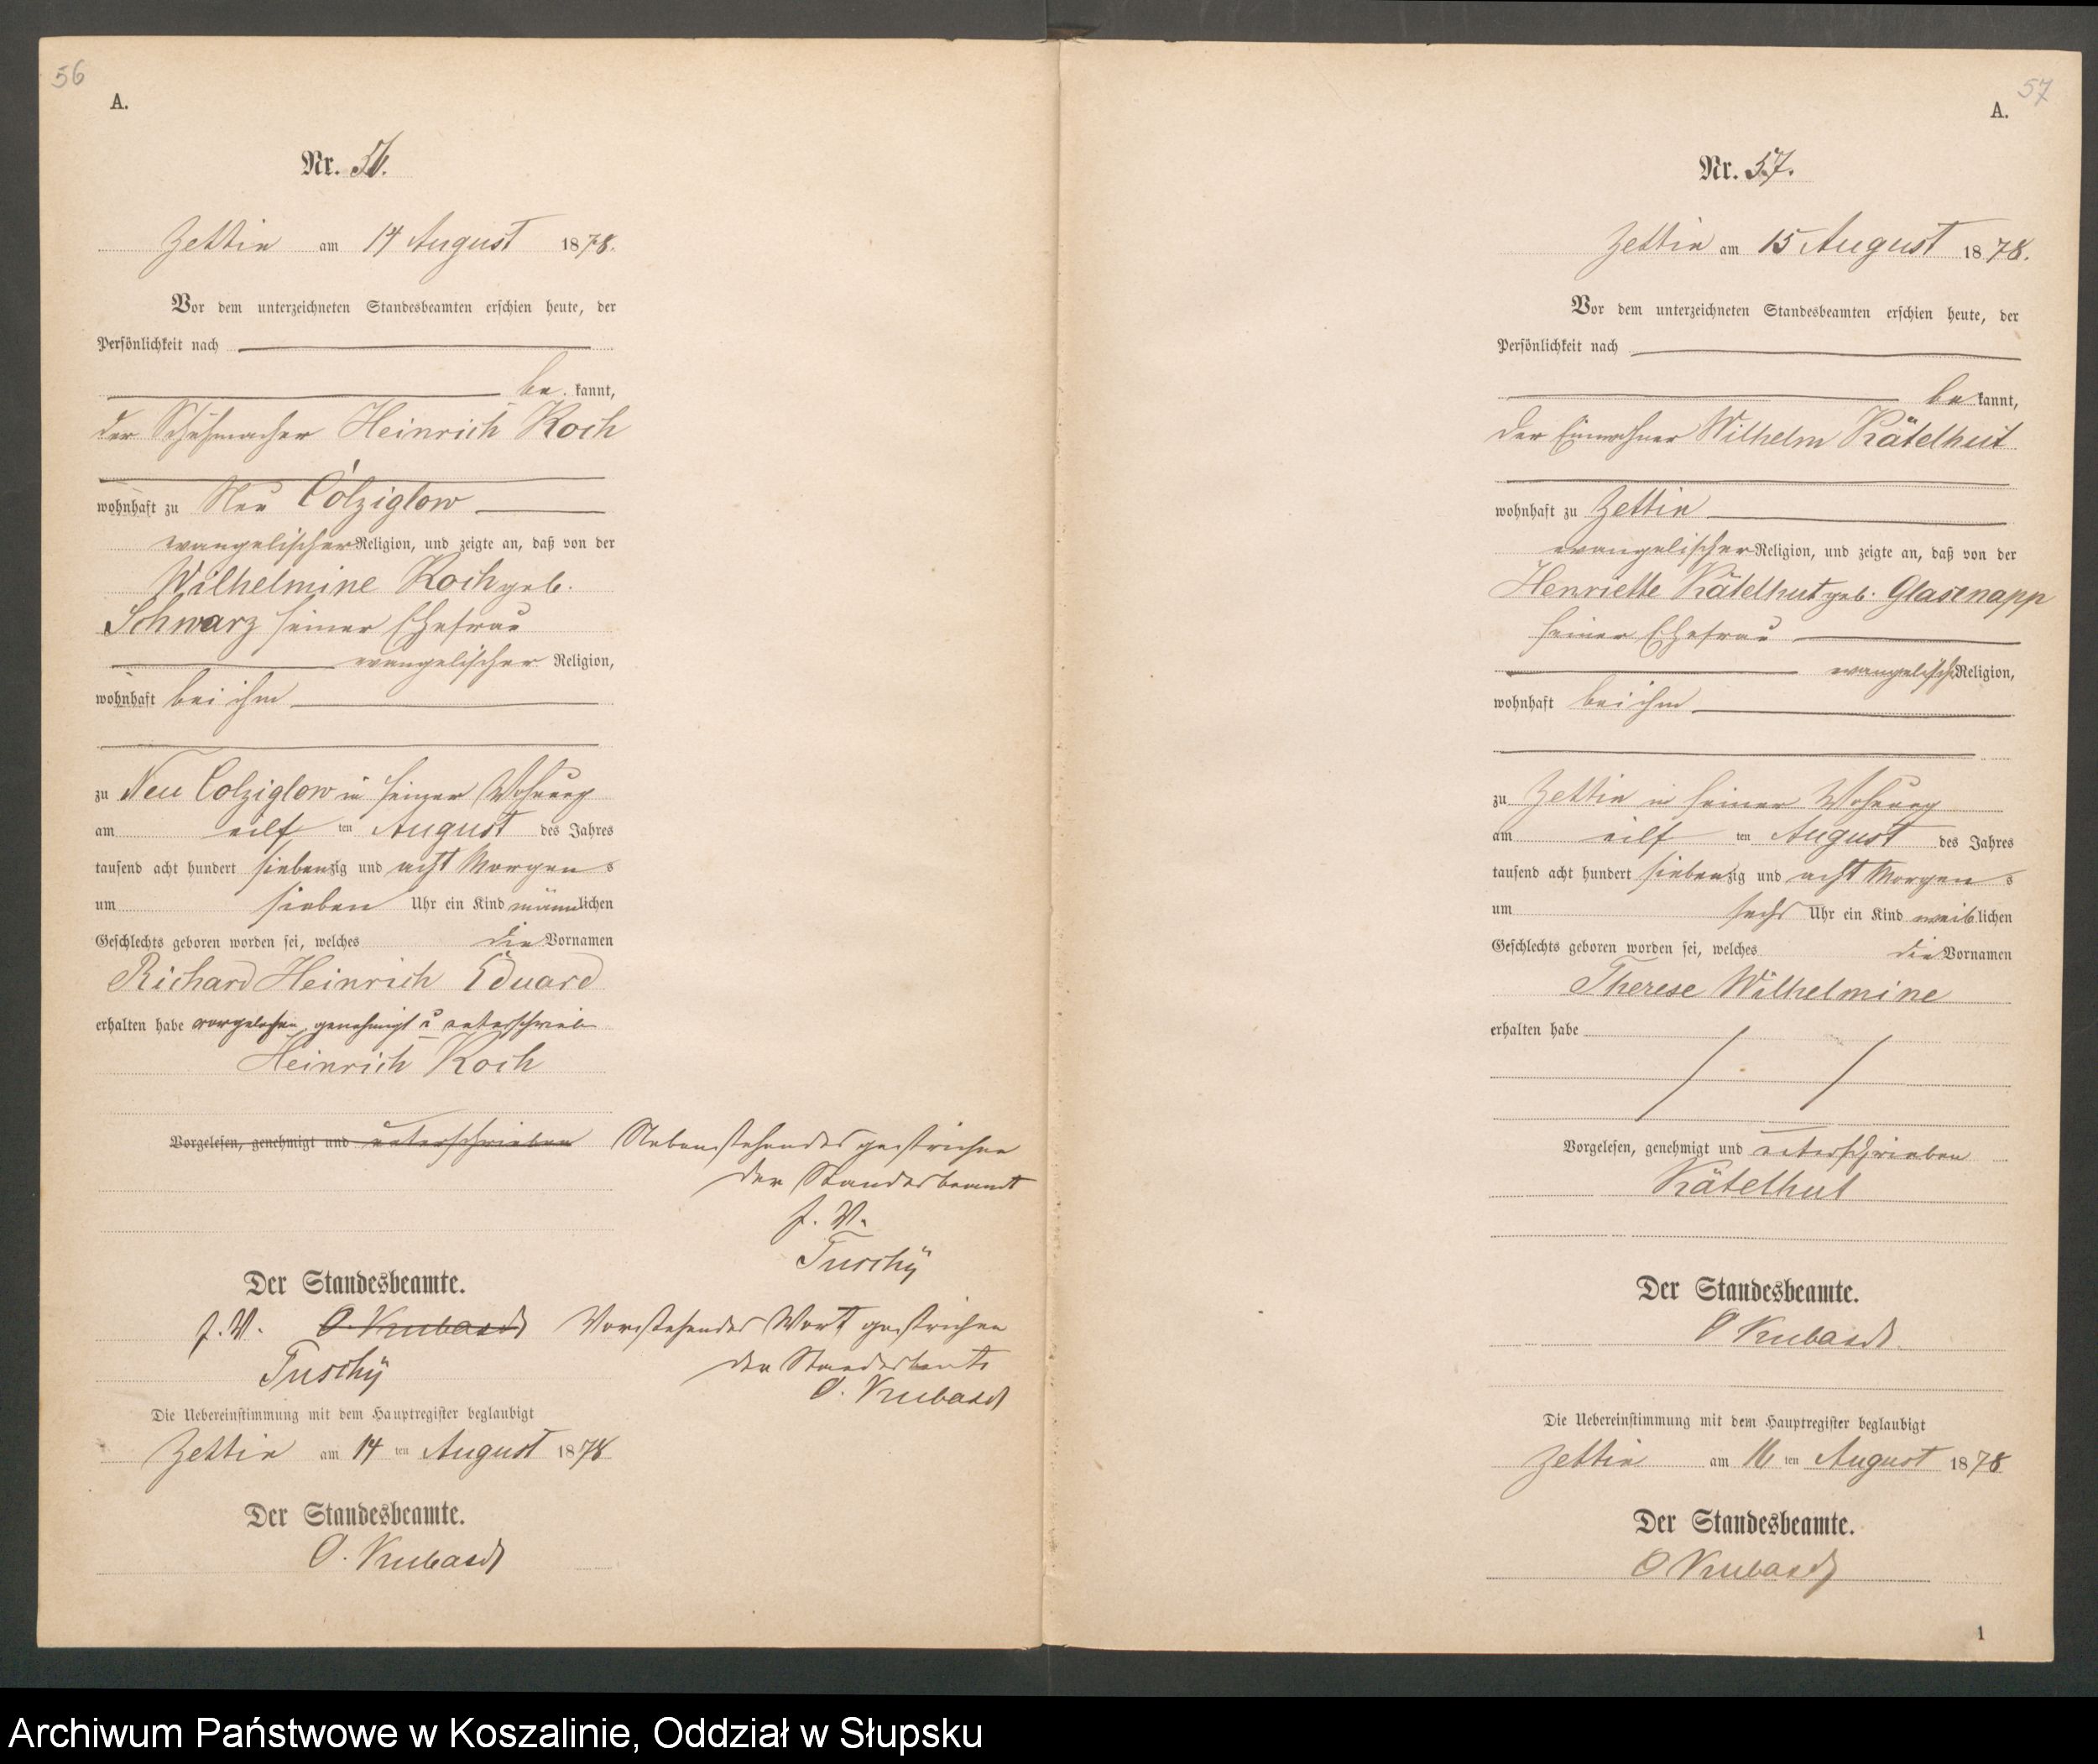 56
A.
Nr. 56.
Zettin am 14 August 1878.
Vor dem unterzeichneten Standesbeamten erschien heute, der
Persönlichkeit nach
be kannt,
der Schuhmacher Heinrich Koch
wohnhaft zu Neu Colziglow
evangelischer Religion, und zeigte an, daß von der
Wilhelmine Koch geb.
Schwarz seiner Ehefrau
evangelischer Religion,
wohnhaft bei ihm
zu Neu Colziglow in seiner Wohnung
am eilf ten August des Jahres
tausend acht hundert siebenzig und acht Morgens
um sieben Uhr ein Kind männlichen
Geschlechts geboren worden sei, welches die Vornamen
Richard Heinrich Eduard
erhalten habe vorgelesen, genehmigt u unterschrieb
Heinrich Koch
Vorgelesen, genehmigt und unterschrieben
Nebenstehendes gestrichen
der Standesbeamt
J. V.
Tuschÿ
Der Standesbeamte.
J. V. O. Krubardt
Tuschÿ
Vorstehendes Wort gestrichen
der Standesbeamte
O. Krubardt
Die Uebereinstimmung mit dem Hauptregister beglaubigt
Zettin am 14 ten August 1878
Der Standesbeamte.
O. Krubardt
57
A.
Nr. 57.
Zettin am 15 August 1878.
Vor dem unterzeichneten Standesbeamten erschien heute, der
Persönlichkeit nach
be kannt,
der Einwohner Wilhelm Kätelhut
wohnhaft zu Zettin
evangelischer Religion, und zeigte an, daß von der
Henriette Kätelhut geb. Glasenapp
seiner Ehefrau
evangelisch Religion,
wohnhaft bei ihm
zu Zettin in seiner Wohnung
am eilf ten August des Jahres
tausend acht hundert siebenzig und acht Morgens
um sechs Uhr ein Kind weiblichen
Geschlechts geboren worden sei, welches die Vornamen
Therese Wilhelmine
erhalten habe
Vorgelesen, genehmigt und unterschrieben
Kätelhut
Der Standesbeamte.
O Krubardt
Die Uebereinstimmung mit dem Hauptregister beglaubigt
Zettin am 16 ten August 1878
Der Standesbeamte.
O Krubardt
1
Archiwum Państwowe w Koszalinie, Oddział w Słupsku